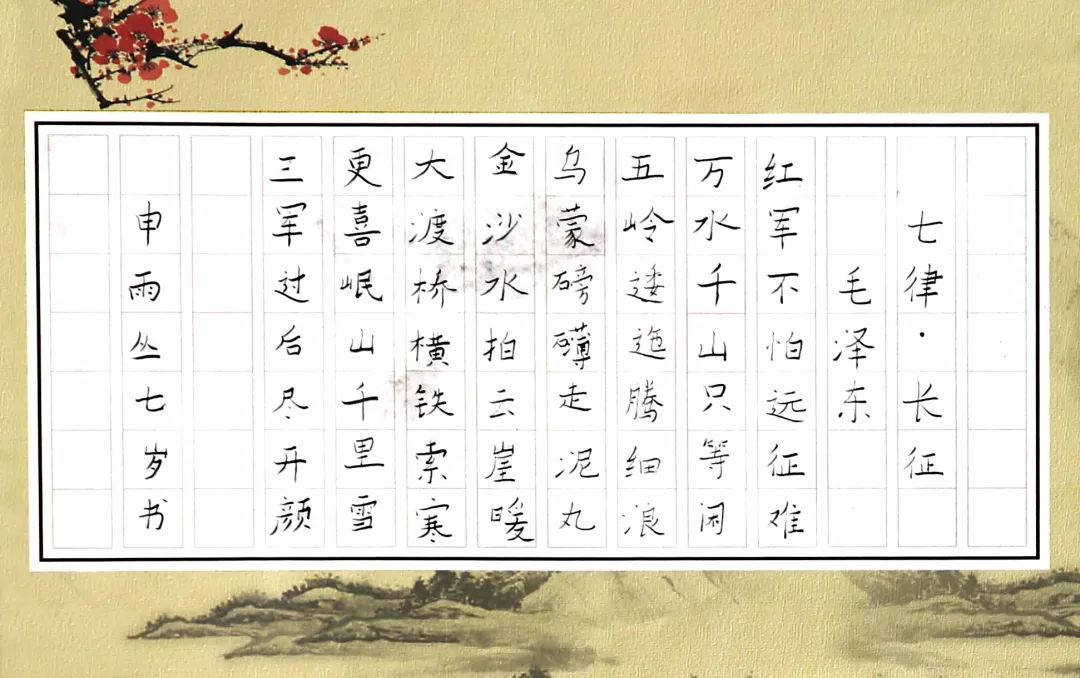 七律·长征
毛泽东
红军不怕远征难
万水千山只等闲
五岭逶迤腾细浪
乌蒙磅礴走泥丸
金沙水拍云崖暖
大渡桥横铁索寒
更喜岷山千里雪
三军过后尽开颜
申雨丛七岁书